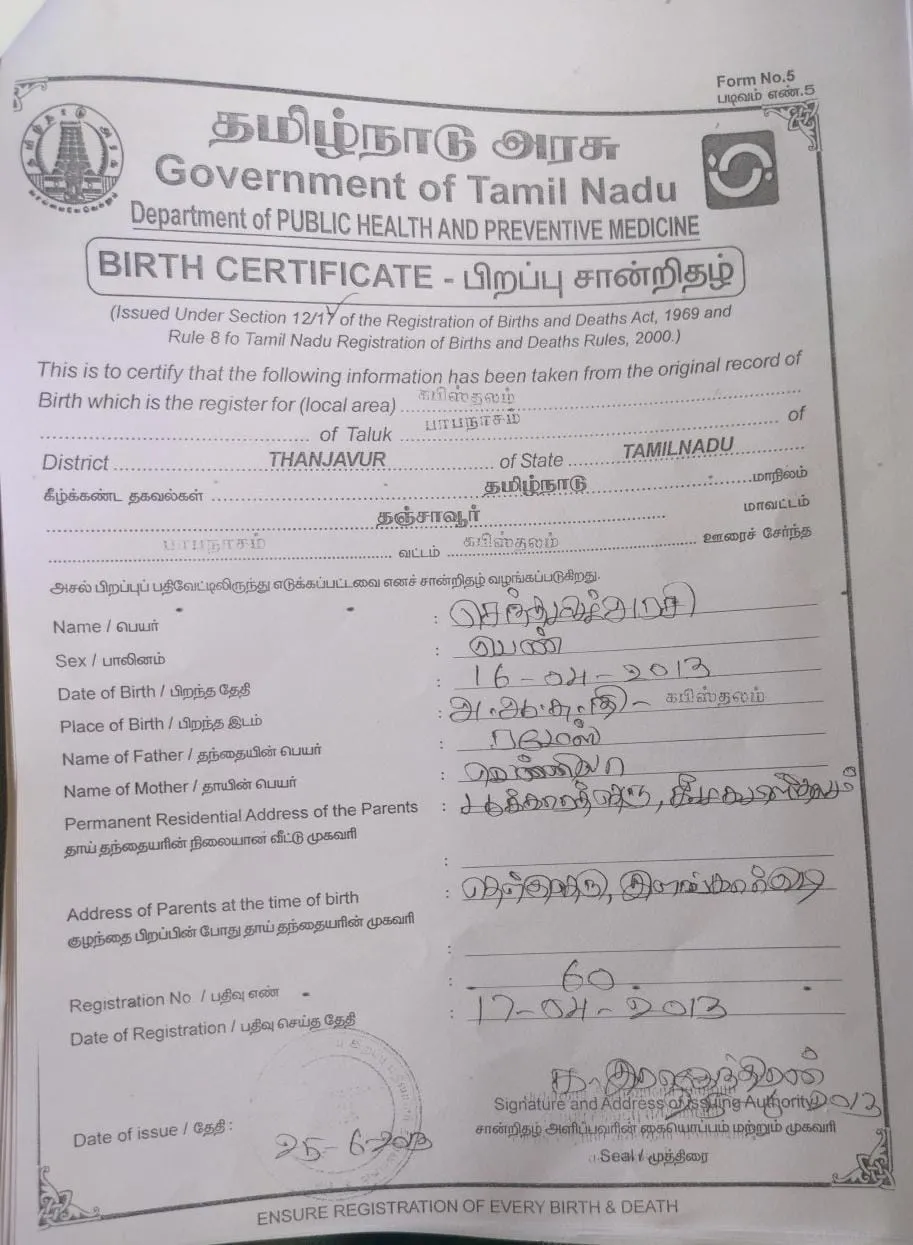 Form No.5
படிவம் எண்.5
தமிழ்நாடு அரசு
Government of Tamil Nadu
Department of PUBLIC HEALTH AND PREVENTIVE MEDICINE
BIRTH CERTIFICATE - பிறப்பு சான்றிதழ்
(Issued Under Section 12/17 of the Registration of Births and Deaths Act, 1969 and
Rule 8 fo Tamil Nadu Registration of Births and Deaths Rules, 2000.)
This is to certify that the following information has been taken from the original record of
Birth which is the register for (local area) கபிஸ்தலம்
of Taluk பாபநாசம் of
District THANJAVUR of State TAMILNADU
கீழ்க்கண்ட தகவல்கள் தமிழ்நாடு மாநிலம்
தஞ்சாவூர் மாவட்டம்
பாபநாசம் வட்டம் கபிஸ்தலம் ஊரைச் சேர்ந்த
அசல் பிறப்புப் பதிவேட்டிலிருந்து எடுக்கப்பட்டவை எனச் சான்றிதழ் வழங்கப்படுகிறது.
Name / பெயர் :
Sex / பாலினம் : பெண்
Date of Birth / பிறந்த தேதி : 16-04-2013
Place of Birth / பிறந்த இடம் : அ.ஆ.சு.நி - கபிஸ்தலம்
Name of Father / தந்தையின் பெயர் : ரமேஸ்
Name of Mother / தாயின் பெயர் : வெண்ணிலா
Permanent Residential Address of the Parents :
தாய் தந்தையரின் நிலையான வீட்டு முகவரி
:
Address of Parents at the time of birth :
குழந்தை பிறப்பின் போது தாய் தந்தையரின் முகவரி
:
Registration No / பதிவு எண் : 60
Date of Registration / பதிவு செய்த தேதி : 17-04-2013
Signature and Address of Issuing Authority
Date of issue / தேதி : 25-6-2013
சான்றிதழ் அளிப்பவரின் கையொப்பம் மற்றும் முகவரி
Seal / முத்திரை
ENSURE REGISTRATION OF EVERY BIRTH & DEATH